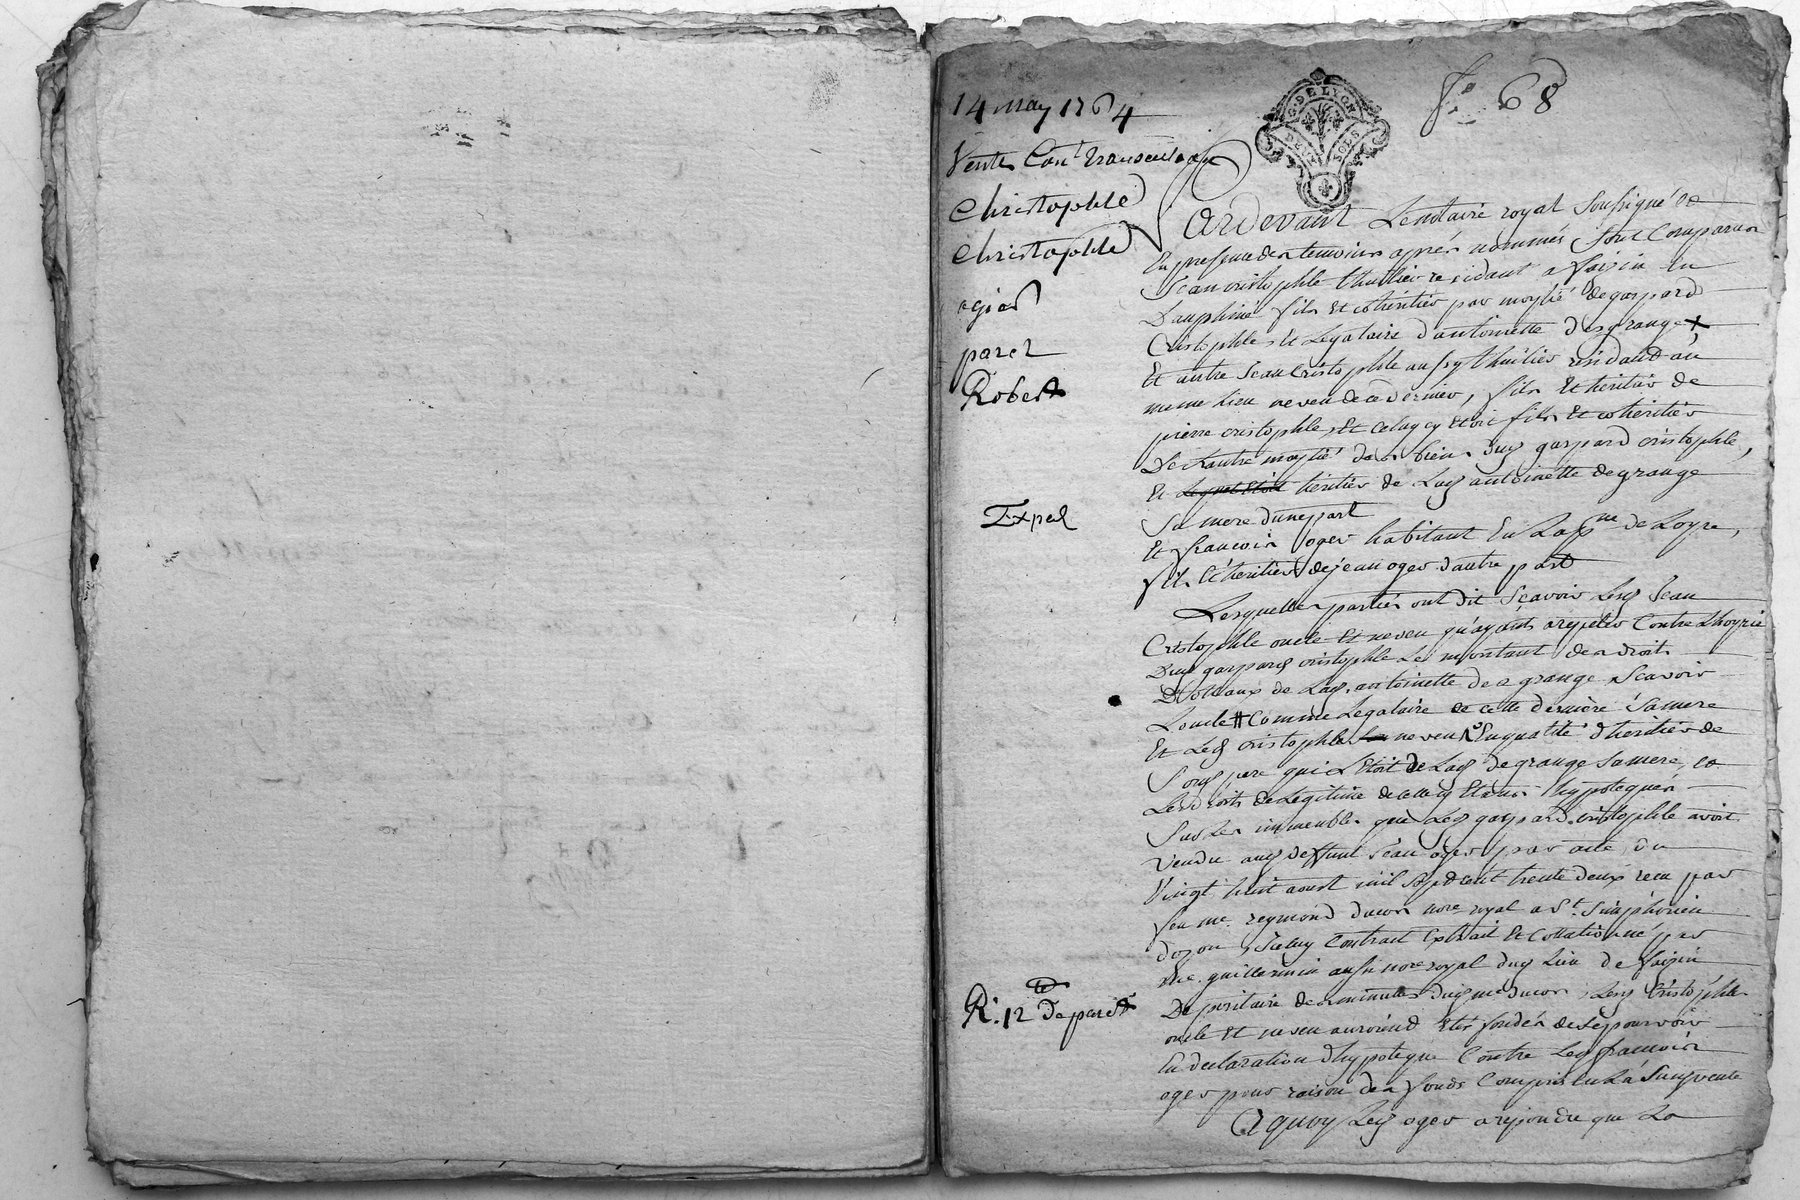 14 may 1764
fo 68
G. DE LYON
DEUX SOLS
Vente Cont
Christophle
Christophle
ogier
parel
Robert
Exped
R. 12 de parel
Pardevant Le notaire royal Soussigné &
En presence des temoins aprés nommés Sont Comparus
Jean cristophle thuillier residant a faisin en
Dauphiné fils et coheritier par moytié de gaspard
Cristophle, et Legataire d'antoinette desgrange X
Et autre Jean Cristophle aussy thuilier residant au
meme Lieu neveu de ce dernier, fils et heritier de
pierre cristophle, et Celuy cy etoit fils et coheritier
De L'autre moytié des biens dud gaspard cristophle,
Et heritier de Lad antoinette degrange
Sa mere d'une part
Et francois oger habitant En La psse de Loyre,
fils et heritier de jean oger d'autre part
Lesquelles parties ont dit Scavoir Lesd Jean
Cristophle oncle et neveu qu'ayants a repeter Contre L'hoyrie
Dud gaspard cristophle Le montant des droits
Dotaux de Lad antoinette des grange Scavoir
L'oncle # Comme Legataire de cette derniere Samere
Et Led cristophle neveu En qualité d'heritier de
Sond pere qui L'etoit de Lad degrange Samere, et
Les droits de Legitime de celle cy etants hypotequés
Sur Les immeubles que Led gaspard cristophle avoit
Vendu aud deffunt Jean oger par acte du
Vingt huit aoust mil sept cent trente deux recu par
feu me reymond ducon nore royal a St. Simphorien
dozon, Iceluy Contract Extrait et Collationné par
Me. guillermin aussi nore royal dud Lieu de faisin
De positaire des minutes dud me ducon, Lesd Cristophle
oncle et neveu auroient etés fondés de se pourvoir
En declaration d'hypoteque Contre Led francois
oger pour raison des fonds Compris En La Susd vente
A quoy Led oger a repondu que La